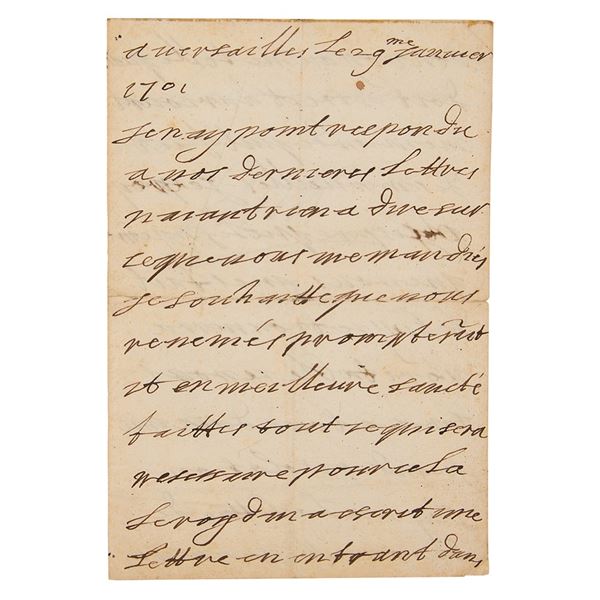 a versailles le 29me janvier
1701
Je nay point respondu
a vos dernieres lettres
naiant rien a dire sur
ce que vous me mandiés
je souhaitte que vous
reveniés promptemt
et en meilleure sancté
faittes tout ce qui sera
nescessaire pour cela
Le roy dun a escrit une
lettre en entrant dans